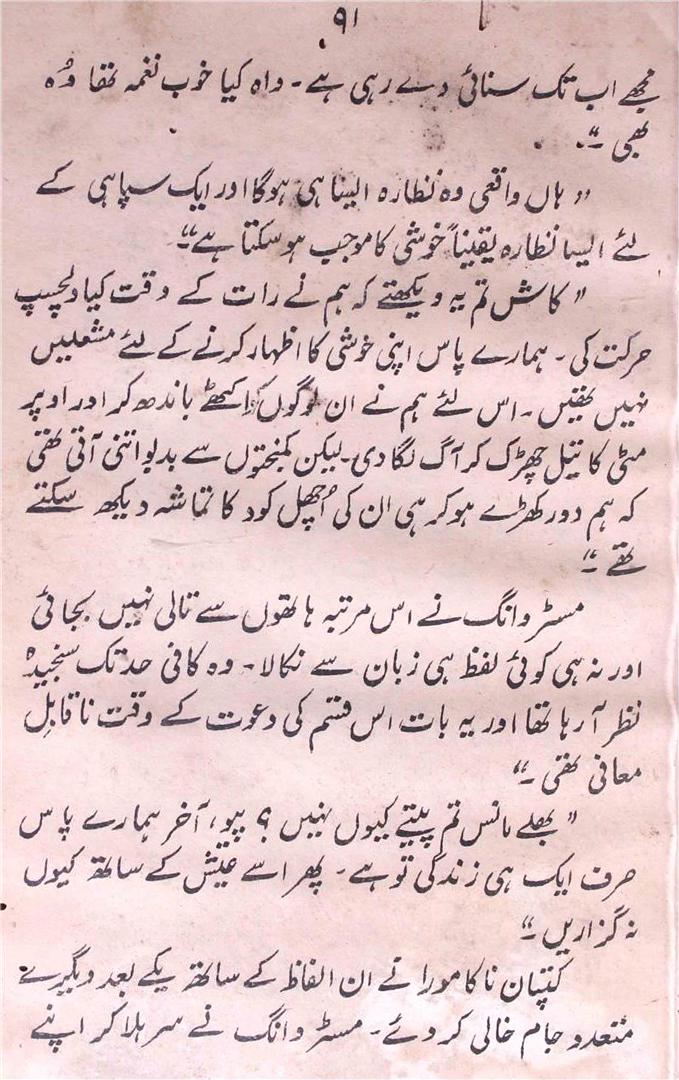 ۹۱
مجھے اب تک سنائی دے رہی ہے۔ واہ کیا خوب نغمہ تھا وُہ
بھی ۔“
”ہاں واقعی وہ نظارہ ایسا ہی ہوگا اور ایک سپاہی کے
لئے ایسا نظارہ یقیناً خوشی کا موجب ہو سکتا ہے“۔
”کاش تم یہ دیکھتے کہ ہم نے رات کے وقت کیا دلچسپ
حرکت کی۔ ہمارے پاس اپنی خوشی کا اظہار کرنے کے لئے مشعلیں
نہیں تھیں۔ اس لئے ہم نے ان لوگوں کو اکٹھے باندھ کر اور اوپر
مٹی کا تیل چھڑک کر آگ لگا دی۔ لیکن کمبختوں سے بدبو اتنی آتی تھی
کہ ہم دور کھڑے ہو کر ہی ان کی اُچھل کود کا تماشہ دیکھ سکتے
تھے ۔“
مسٹر وانگ نے اس مرتبہ ہاتھوں سے تالی نہیں بجائی
اور نہ ہی کوئی لفظ ہی زبان سے نکالا۔ وہ کافی حد تک سنجیدہ
نظر آ رہا تھا اور یہ بات اس قسم کی دعوت کے وقت ناقابلِ
معافی تھی ۔“
”بھلے مانس تم پیتے کیوں نہیں ؟ پیو، آخر ہمارے پاس
صرف ایک ہی زندگی تو ہے۔ پھر اسے عیش کے ساتھ کیوں
نہ گزاریں ۔“
کپتان ناکامورا نے ان الفاظ کے ساتھ یکے بعد دیگرے
متعدد جام خالی کر دئے۔ مسٹر وانگ نے سر ہلا کر اپنے